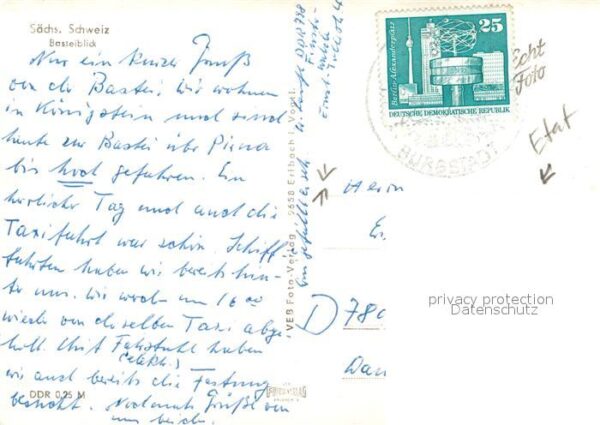 Sächs. Schweiz
Basteiblick
Nur ein kurzer Gruß
von der Bastei. Wir wohnen
in Königstein und sind
heute zur Bastei über Pirna
bis hoch gefahren. Ein
herrlicher Tag und auch die
Taxifahrt war schön. Schiff-
fahrten haben wir bereits hin-
ter uns. Wir werden um 16 00
wieder von derselben Taxi abge
holt. Mit Fahrstuhl haben
(elektr.)
wir auch bereits die Festung
besucht. Nochmals Grüße von
uns beiden.
DDR 0,25 M
VEB Foto-Verlag 9658 Erlbach i. Vogtl.
DDR 778
25
Berlin-Alexanderplatz
DEUTSCHE DEMOKRATISCHE REPUBLIK
BURGSTADT
Echt
Foto
Etat
Herrn
D 78
privacy protection
Datenschutz